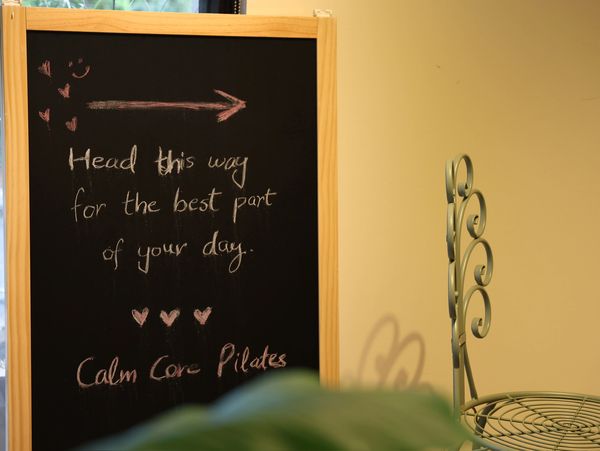 Head this way
for the best part
of your day..
Calm Core Pilates